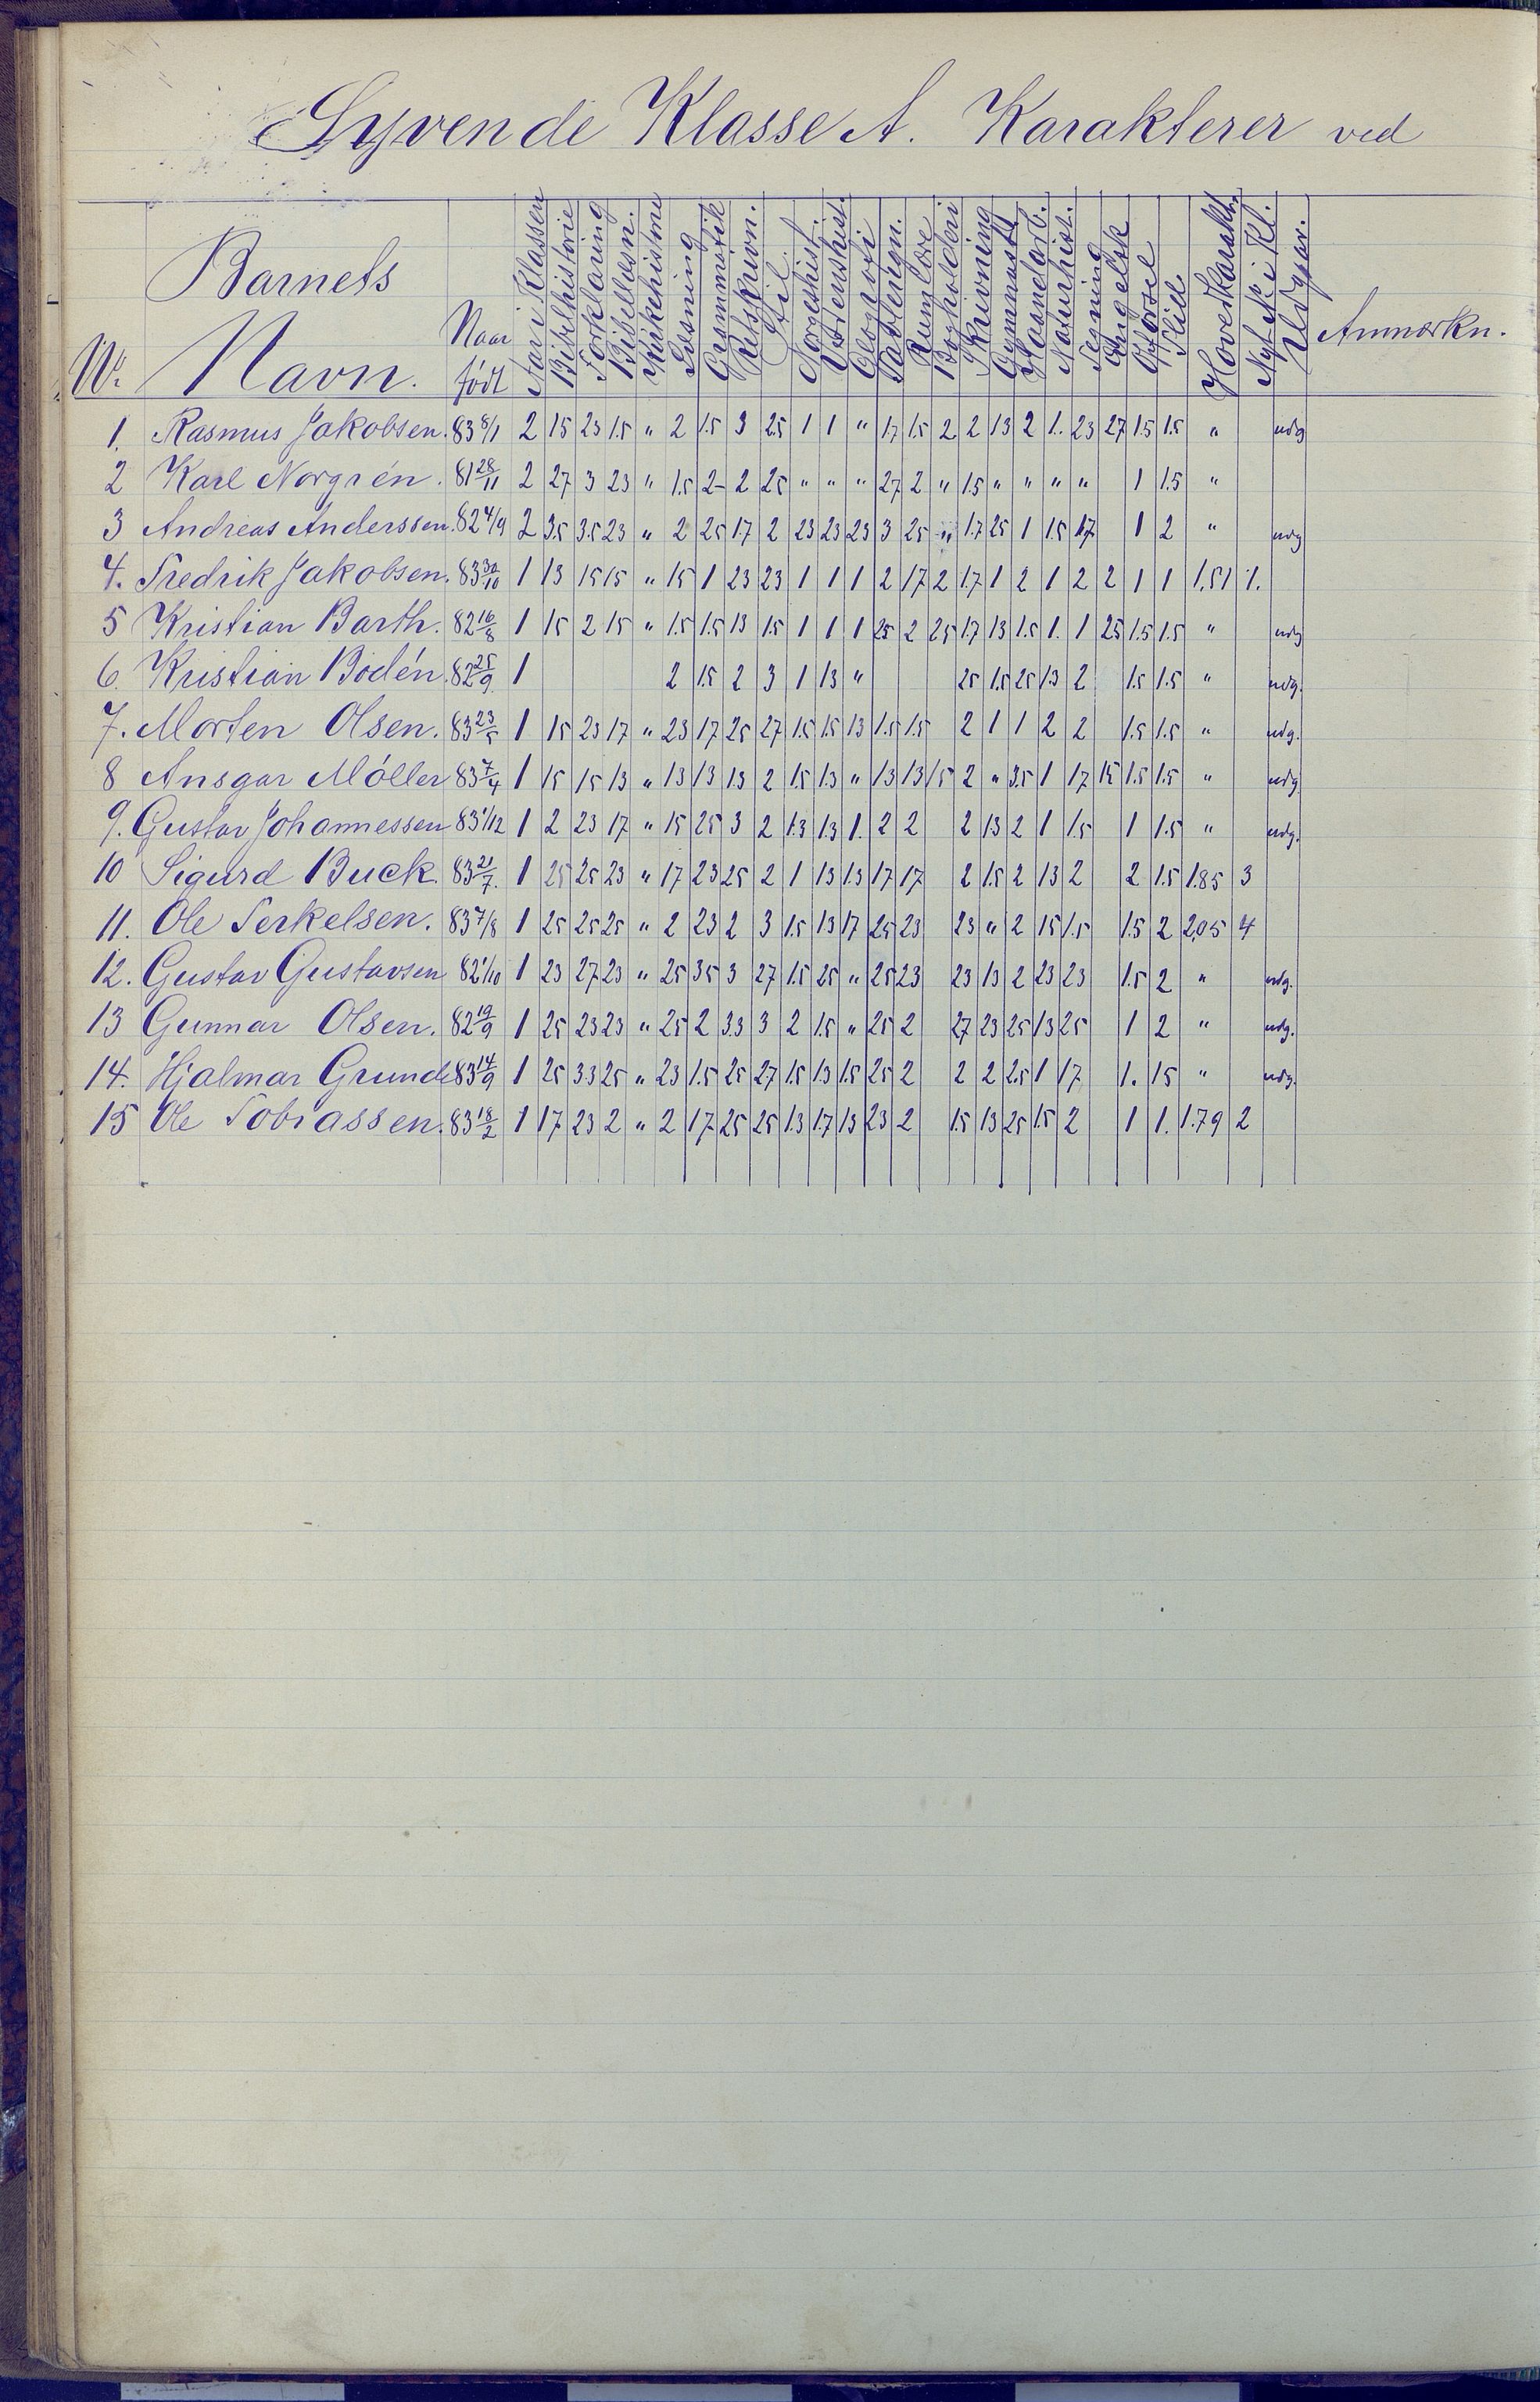 Syvende Klasse A. Karakterer ved
Nr. Barnets Navn. Naar født Aar i Klassen Bibelhistorie Forklaring Bibellæsn. Kirkehistorie Læsning Grammatik Retskrivn. Stil Norgeshist. Verdenshist. Geografi Tavleregn. Rumlære Bogholderi Skrivning Gymnastik Haandarb. Naturhist. Tegning Engelsk Opførsel Flid Hovedkarakt. Nyt No i Kl. Udgaar. Anmærkn.
1. Rasmus Jakobsen. 83 8/1 2 15 23 1.5 " 2 1.5 3 25 1 1 " 17 1.5 2 2 13 2 1. 23 27 1.5 1.5 " udg
2 Karl Norgrén. 81 28/11 2 27 3 23 " 1.5 2 2 25 " " " 27 2 " 1.5 " " " " 1 1.5 "
3 Andreas Anderssen. 82 4/9 2 35 3.5 23 " 2 25 17 2 23 23 23 3 25 " 1.7 25 1 1.5 17 1 2 " udg
4. Fredrik Jakobsen. 83 30/10 1 13 15 15 " 15 1 23 23 1 1 1 2 17 2 1.7 1 2 1 2 2 1 1 1.51 1.
5 Kristian Barth. 82 16/8 1 15 2 15 " 1.5 1.5 13 1.5 1 1 1 25 2 25 1.7 13 1.5 1. 1 25 1.5 1.5 " udg
6. Kristian Bodén. 82 25/9 1 2 1.5 2 3 1 13 " 25 1.5 25 1.3 2 1.5 1.5 " udg.
7. Morten Olsen. 83 23/5 1 15 23 17 " 23 17 25 27 1.5 1.5 13 1.5 1.5 2 1 1 2 2 1.5 1.5 " udg.
8 Ansgar Móller 83 7/4 1 15 15 13 " 13 13 13 2 1.5 13 " 13 13 15 2 " 3.5 1 17 15 1.5 1.5 " udg
9. Gustav Johannessen 83 1/12 1 2 23 17 " 15 25 3 2 1.3 13 1. 2 2 2 13 2 1 1.5 1 1.5 " udg.
10 Sigurd Buck. 83 21/7. 1 25 25 23 " 17 23 25 2 1 13 1.3 17 17 2 1.5 2 13 2 2 1.5 1.85 3
11. Ole Terkelsen. 83 7/8 1 25 25 25 " 2 23 2 3 1.5 13 17 25 23 23 " 2 15 1.5 1.5 2 2,05 4
12. Gustav Gustavsen 82 1/10 1 23 27 23 " 25 35 3 27 1.5 25 " 25 23 23 13 2 23 23 1.5 2 " udg.
13 Gunnar Olsen. 82 19/9 1 25 23 23 " 25 2 3.3 3 2 1.5 " 25 2 27 23 25 13 25 1 2 " udg.
14. Hjalmar Grunde 83 14/9 1 25 33 25 " 23 1.5 25 27 1.5 13 1.5 25 2 2 2 2.5 1 17 1. 15 " udg.
15 Ole Tobiassen. 83 18/2 1 17 23 2 " 2 17 25 25 1.3 1.7 13 23 2 1.5 13 25 1.5 2 1 1. 1.79 2